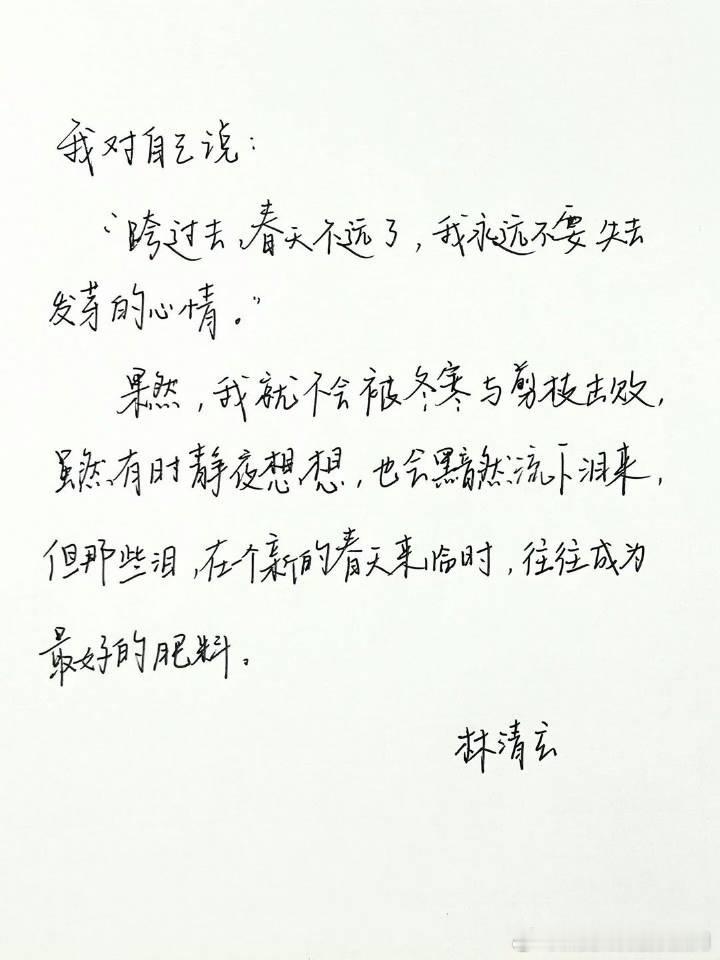 我对自己说：
“跨过去，春天不远了，我永远不要失去
发芽的心情。”
果然，我就不会被冬寒与剪枝击败，
虽然有时静夜想想，也会黯然流下泪来，
但那些泪，在个新的春天来临时，往往成为
最好的肥料。
林清玄